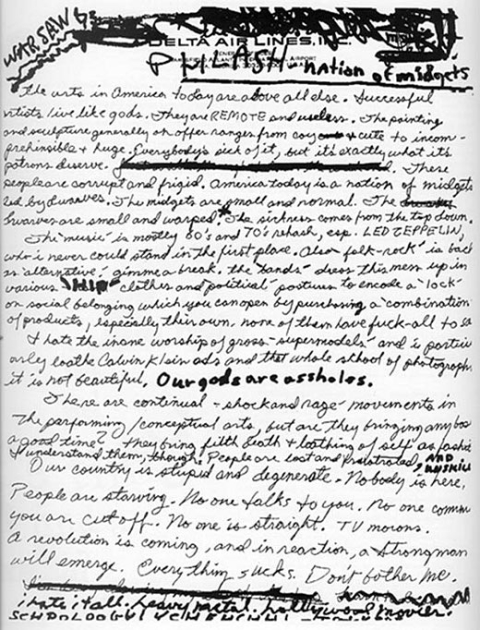 WARSAW
DELTA AIR LINES, INC.
nation of midgets
The arts in America today are above all else. Successful
artists live like gods. They are REMOTE and useless. The painting
and sculpture generally on offer ranges from coy cute to incom-
prehinsible & huge. Everybody's sick of it, but it's exactly what it's
patrons deserve. These
people are corrupt and frigid. America today is a nation of midgets
led by dwarves. The midgets are small and normal. The
Dwarves are small and warped. The sickness comes from the top down.
The "music" is mostly 60's and 70's rehash, esp. LED ZEPPELIN,
who i never could stand in the first place. Also folk-rock is back
as 'alternative', gimme a break. the "bands" dress this mess up in
various "HIP" clothes and "political" postures to encode a "lock"
on social belonging which you can open by purchasing a combination
of products, especially their own. none of them have fuck-all to sa
I hate the inane worship of gross "supermodels" and i particu
arly loathe Calvin Klein ads and that whole school of photograph
it is not beautiful. Our gods are assholes.
There are continual - shock and rage - movements in
The performing/conceptual arts, but are they bringing anybod
a good time? They bring filth death & loathing of self as fashio
I understand them, though. People are lost and frustrated, AND
UNSKILL
Our country is stupid and degenerate. Nobody is here.
People are starving. No one talks to you. No one commu
you are cut off. No one is straight. TV morons.
A revolution is coming, and in reaction, a Strongman
will emerge. Everything sucks. Don't bother me.
i hate it all. heavy metal. hollywood movies.
SCHPOLOOGY!